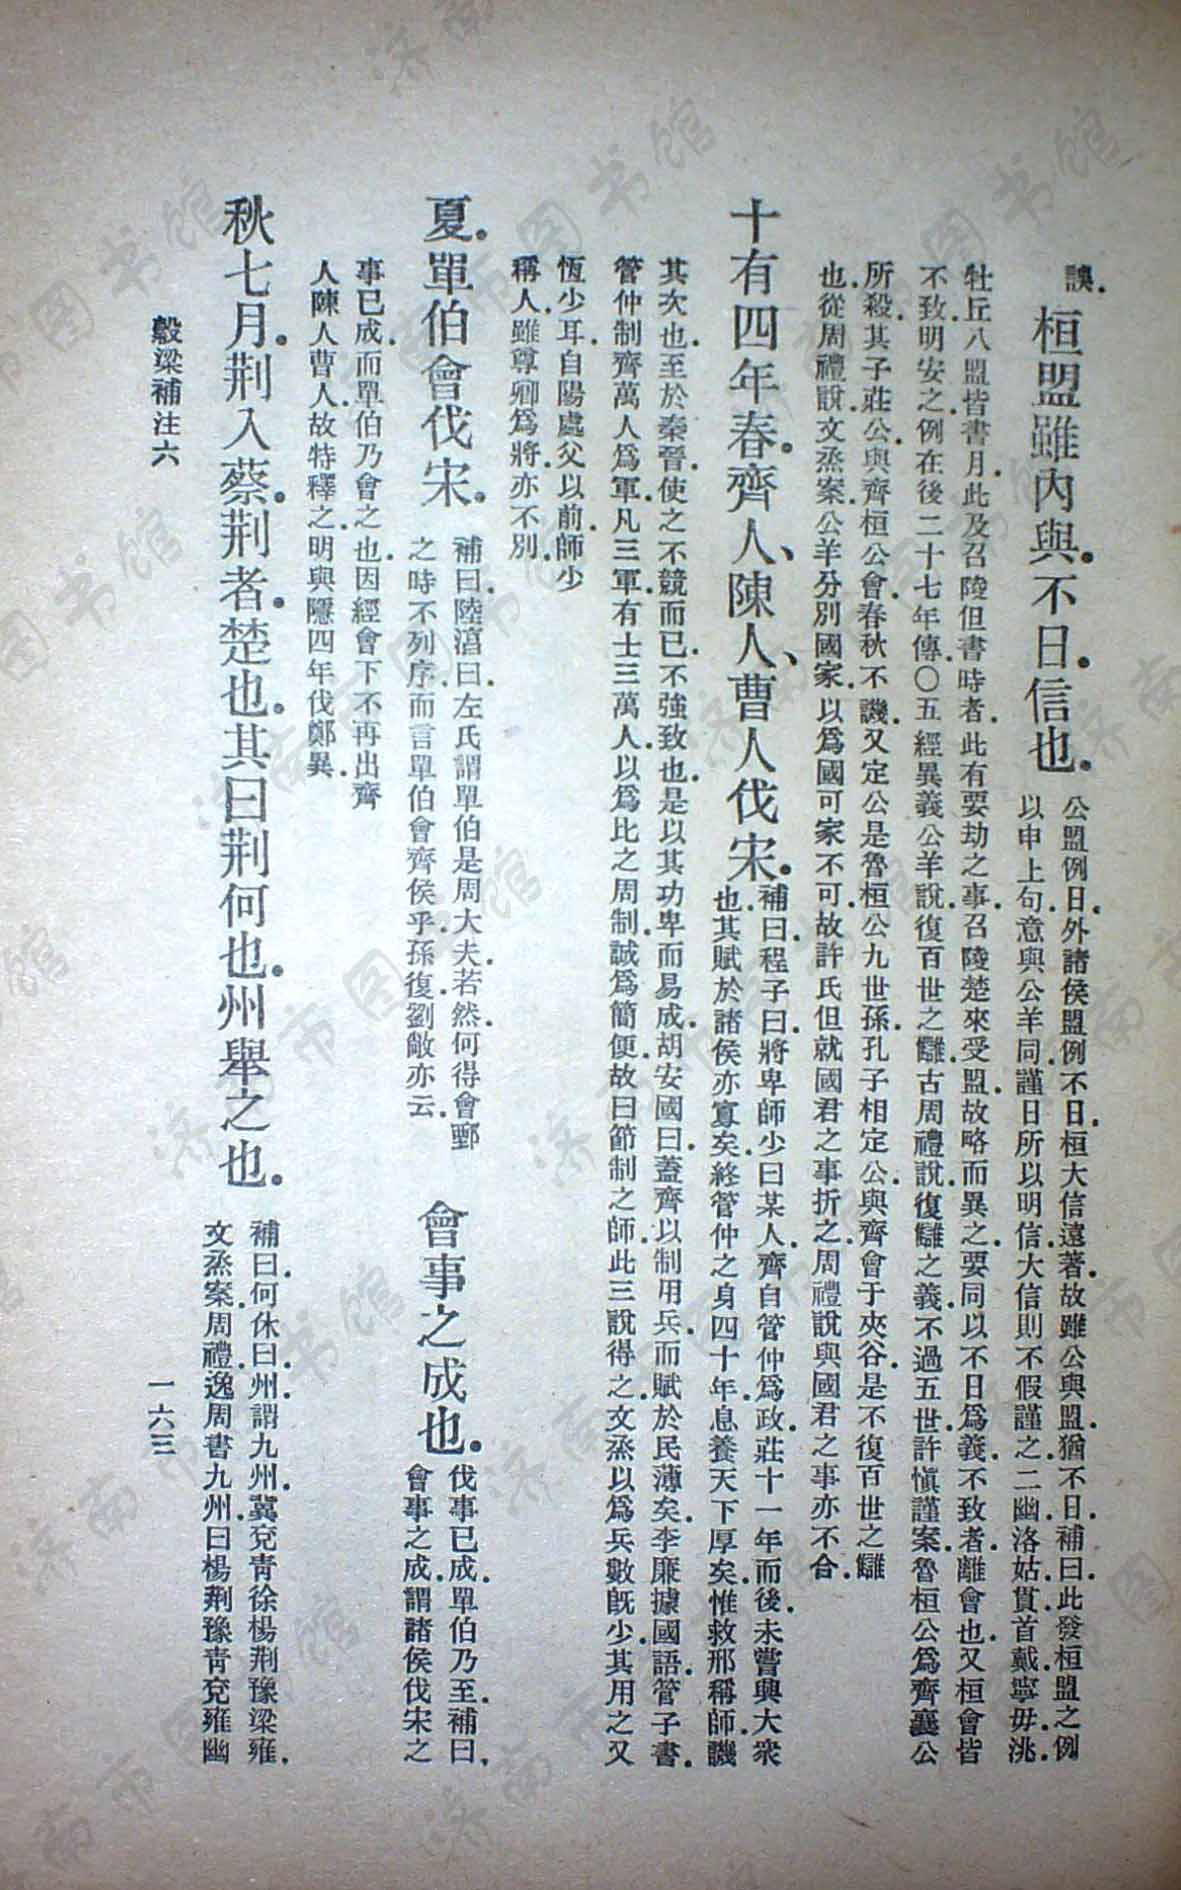 誤。
桓盟雖內與。不日。信也。
公盟例日。外諸侯盟例不日。桓大信遠著。故雖公與盟。猶不日。補曰。此發桓盟之例
以申上句。意與公羊同。謹日所以明信。大信則不假謹之。二幽。洛姑。貫。首戴。寧毋。洮。
牡丘八盟皆書月。此及召陵但書時者。此有要劫之事。召陵楚來受盟。故略而異之。要同以不日為義。不致者。離會也。又桓會皆
不致。明安之。例在後二十七年傳。○五經異義公羊說。復百世之讎。古周禮說。復讎之義。不過五世。許慎謹案。魯桓公為齊襄公
所殺。其子莊公與齊桓公會。春秋不譏。又定公是魯桓公九世孫。孔子相定公。與齊會于夾谷。是不復百世之讎
也。從周禮說。文烝案。公羊分別國家。以為國可家不可。故許氏但就國君之事折之。周禮說與國君之事亦不合。
十有四年春。齊人、陳人、曹人伐宋。
補曰。程子曰。將卑師少曰某人。齊自管仲為政。莊十一年而後。未嘗興大衆
也。其賦於諸侯亦寡矣。終管仲之身四十年。息養天下厚矣。惟救邢稱師。譏
其次也。至於秦晉。使之不競而已。不強致也。是以其功卑而易成。胡安國曰。蓋齊以制用兵。而賦於民薄矣。李廉據國語管子書。
管仲制齊萬人為軍。凡三軍。有士三萬人。以為比之周制。誠為簡便。故曰節制之師。此三說得之。文烝以為兵數旣少。其用之又
恆少耳。自陽處父以前。師少
稱人。雖尊卿為將。亦不別。
夏。單伯會伐宋。
補曰。陸淳曰。左氏謂單伯是周大夫。若然。何得會鄄
之時不列序。而言單伯會齊侯乎。孫復劉敞亦云。
會事之成也。
伐事已成。單伯乃至。補曰。
會事之成。謂諸侯伐宋之
事已成。而單伯乃會之也。因經會下不再出齊
人陳人曹人。故特釋之。明與隱四年伐鄭異。
秋七月。荆入蔡。荆者。楚也。其曰荆何也。州舉之也。
補曰。何休曰。州謂九州。冀兗青徐楊荆豫梁雍。
文烝案。周禮。逸周書九州曰楊荆豫青兗雍幽
穀梁補注六
一六三